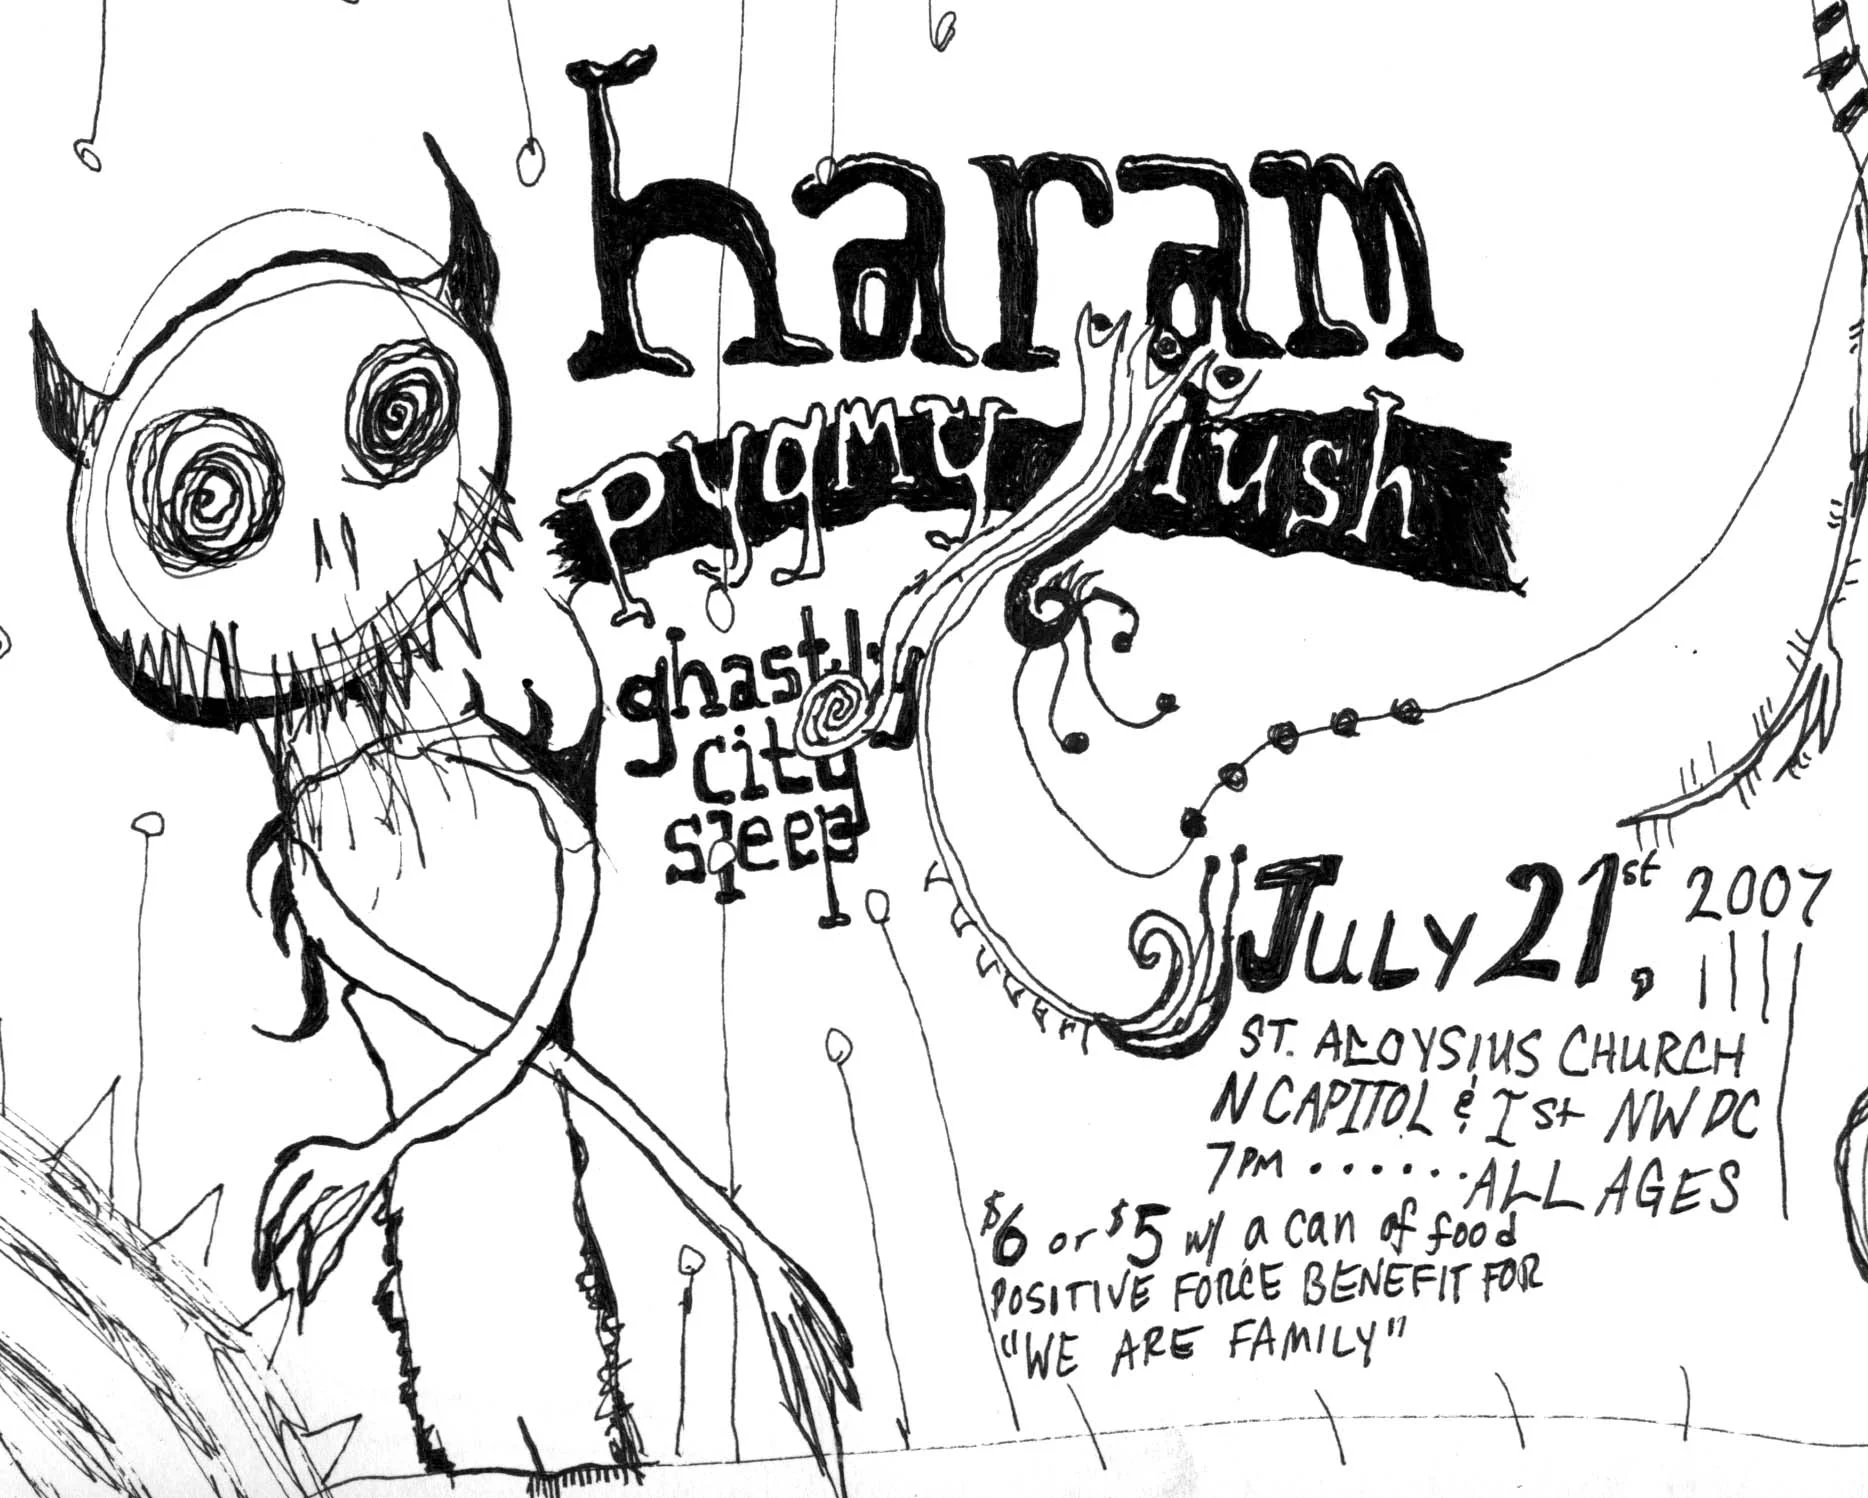 haram
pygmy lush
ghastly
city
sleep
July 21st, 2007
ST. ALOYSIUS CHURCH
N CAPITOL & I st NW DC
7PM . . . . . . ALL AGES
$6 or $5 w/ a can of food
POSITIVE FORCE BENEFIT FOR
"WE ARE FAMILY"